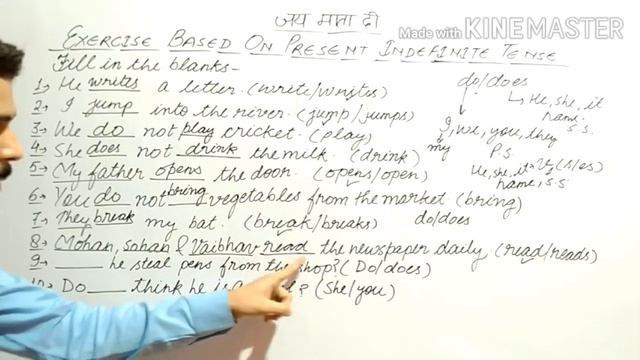 जय माता दी
Made with KINEMASTER
EXERCISE BASED ON PRESENT INDEFINITE TENSE
Fill in the blanks-
1→ He writes a letter. (write/writes)
2→ I jump into the river. (jump/jumps)
3→ We do not play cricket. (play)
4→ She does not drink the milk. (drink)
5→ My father opens the door. (opens/open)
6→ You do not bring vegetables from the market (bring)
7→ They break my bat. (break/breaks)
8→ Mohan, Sohan & Vaibhav read the newspaper daily. (read/reads)
9→ ____ he steal pens from the shop? (Do/does)
Do ____ think he is a ? (She/you)
do/does
He, she, it
name.
S.S.
I, we, you, they
my
P.S.
He, she, it → V₁(s/es)
name, S.S
do/does